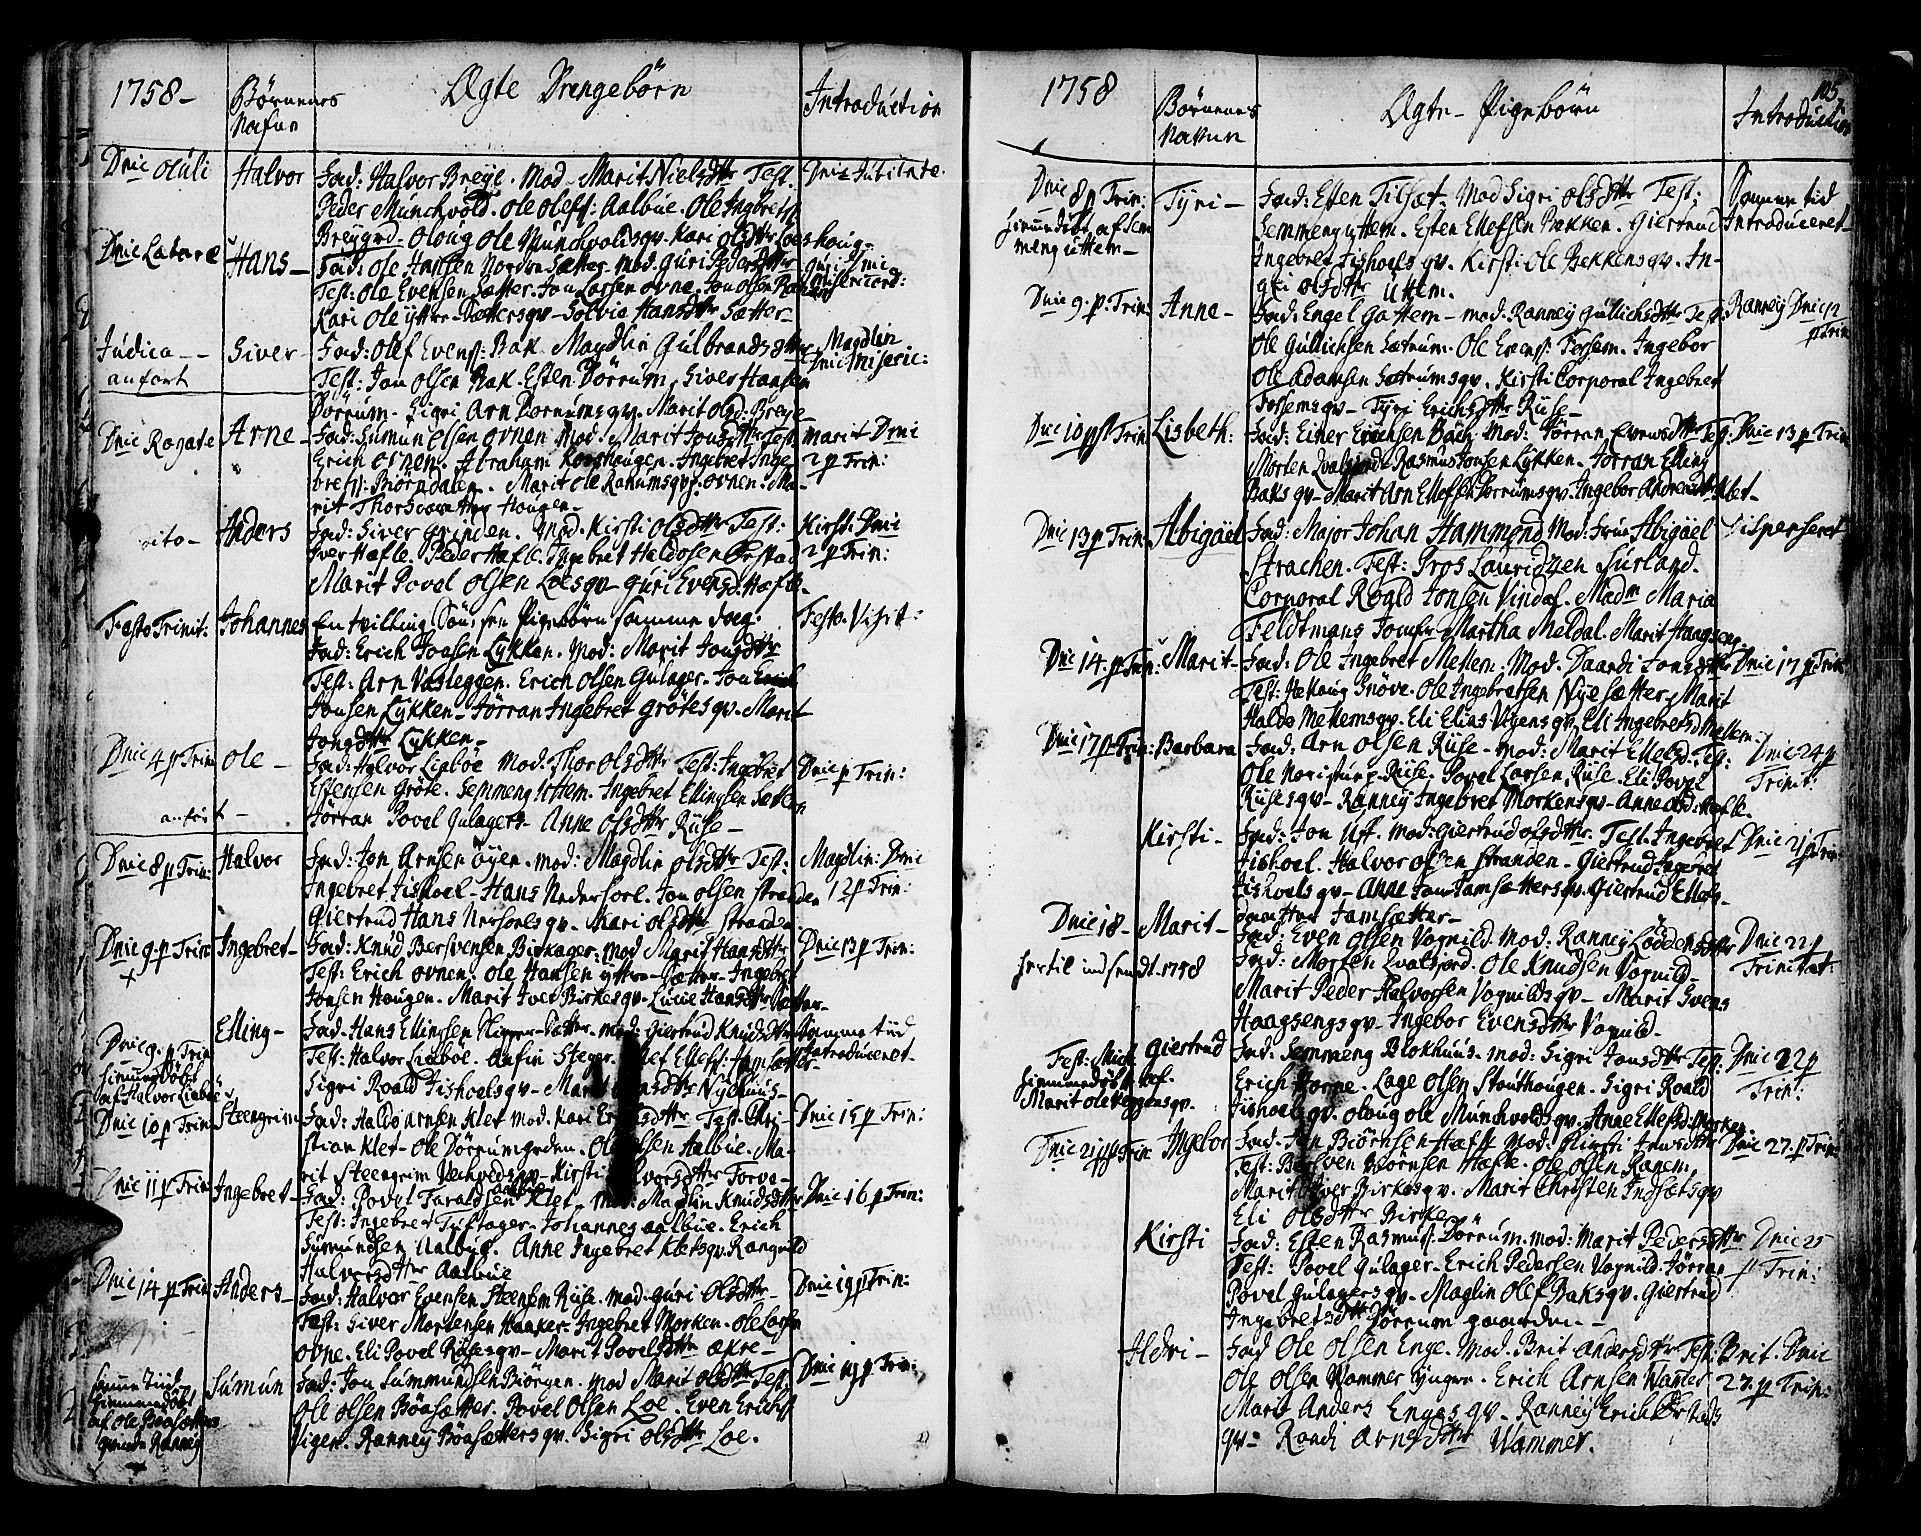 1758 –
Börnenes
Nafun
Ægte Drengebörn
Introduction
Dnic Oculi
Halvor
Fad: Halvor Breye. Mod – Marit Nielsdttr Test.
Peder Munchvold. Ole Olefs: Aalbue. Ole Ingebretss
Breygrd. Oloug Ole Munchvoldsqv. Kari Olsdttr Loeshoug –
Dnic Jubilate.
Dnic Lætare
Hans –
Fad: Ole Hansen Nordre Sætter. mod. Guri Pedersdttr
Test: Ole Evensen Sætter. Jon Larsen ovne. Jon Olsen
Kari Ole ytter – Sættersqv – Solvie Hansdttr Sætter –
Guri Dnic
Misericord:
Judica –
anfört
Siver –
Fad: Olef Evens: Bak. Magdlin Gulbrandsdttr
Test: Jon Olsen Bak. Esten Dörrum, Siver Hansen
Dörrum. Sigri Arn Dörrumsqv. Marit Olsd: Breye –
Magdlin
Dnic Miseric:
Dnic Rogate
Arne –
Fad: Sumun Olsen ovnen Mod: Marit Jonsdttr Test
Erich ovnen. Abraham Korshougen. Ingebret Inge
brets: Biörndalen. Marit Ole Ranumsqv: ovnen. Ma-
rit Thorsdttr Hougen –
Marit Dnic
2 p Trin:
dito –
Anders
Fad: Siver Grinden. Mod. Kirsti Olsdttr Test:
Iver Hæfle. Peder Hæfle. Ingebret Haldosen Örstad
Marit Povel Olsen Loesqv – Guri Evensd. Hæfle.
Kirsti Dnic
2 p Trin:
Festo Trinit:
Johannes
En tvilling Sön, sen Pigebörn samme dag.
Fad: Erich Jonsen Lykken. Mod: Marit Jonsdttr
Test: Arn Vasleggen. Erich Olsen Gulager. Jon Erich
Jonsen Lykken – Jörran Ingebret Grötesqv. Marit
Jonsdttr Lykken –
Festo Visit:
Dnic 4 p Trin
anfört –
Ole –
Fad: Halvor Liaböe Mod: Thor Olsdttr Test: Ingebret
Estensen Gröte. Semmeng Uttem. Ingebret Ellingsen Sætter
Jörran Povel Gulagers – Anne Olsdttr Riise –
Dnic p Trin:
Dnic 8 p Trin:
Halvor
Fad: Jon Arnsen öyen. mod: Magdlin Olsdttr Test:
Ingebret Fishoel – Hans Nedersorl. Jon Olsen Stranden
Giertrud Hans Nersorlsqv – Mari Olsdttr Stranden
Magdlin: Dnic
12 p Trin:
Dnic 9. p Trin:
+
Ingebret –
Fad: Knud Bersvensen Birkager: mod Marit Hansdttr
Test: Erich ovnen. Ole Hansen ytter – Sætter. Ingebret
Jonsen Hougen. Marit Iver Birkesqv – Lucie Hansdttr Sætter –
Dnic 13 p Trin:
Dnic 9. p Trin
Hiemmedöbt
af Halvor Liaböe
Elling –
Fad: Hans Ellingsen Sætter. mod: Giertrud Knudsdttr
Test: Halvor Liaböe. Anfin Steger. Olef Ellefs: Hamsætter –
Sigri Roald Fishoelsqv – Marit
Samme tiid
Introduceret –
Dnic 10 p Trin
Steengrim
Fad: Haldo Arnsen Klet mod. Kari dttr Test: Chri-
stian Klet – Ole Dörrumgrden. Ole Olsen Aalbue. Ma-
rit Steengrim – Kirsti Halvorsdttr Torve –
Dnic 15 p Trin:
Dnic 11 p Trin
Ingebret –
Fad: Povel Taraldsen Klet – mod Magdlin Knudsdttr
Test: Ingebret Tiftager. Johannes Aalbue. Erich
Sumundsen Aalbue. Anne Ingebret Kletsqv. Rangnild
Halvorsdttr Aalbue
Dnic 16 p Trin:
Dnic 14 p Trin
Anders –
Fad: Halvor Evensen Steensm Riise. mod. Guri Olsdttr –
Test: Siver Mortensen Haaker. Ingebret Morken. Ole Larsn
ovne. Eli Povel Riisesqv – Marit Povelsdttr Ækre –
Dnic 19 p Trin:
Samme Tiid
Hiemmedöbt
af Ole Böasætters
qvinde Ranney
Sumun
Fad: Jon Summundsen Biörgen. mod Marit Olsdttr Test:
Ole Olsen Böasætter. Povel Olsen Loe. Even Erichs
Vigen. Ranney Böasættersqv. Sigri Olsdttr Loe.
Dnic 19 p Trin:
1758
Börnenes
Navne
Ægte – Pigebörn
115
Introduction
Dnic 8 p Trin:
Hiemmedöbt af Sem
meng uttem –
Tyri –
Fad: Esten Tilset. Mod Sigri Olsdttr Test:
Semmeng uttem. Esten Ellefsen Bekken. Giertrud
Ingebret Fishoels qv. Kirsti Ole Bekkensqv. In-
gri Olsdttr Uttem.
Samme tid
Introduceret –
Dnic 9. p Trin:
Anne –
Fad: Engel Gattem – mod: Ranney Gullichsdttr Test
Ole Gullichsen Sætrum. Ole Evens: Forsem. Ingebor
Ole Adamsen Sætrumsqv. Kirsti Corporal Ingebret
Forsemsqv – Tyri Erichsdttr Riise –
Ranney Dnic 12
p Trin
Dnic 10 p Trin
Lisbeth:
Fad: Einer Erichsen Bach. Mod: Jörran Evensdttr Test:
Morten Qvalsjord. Rasmus Jonsen Lykken. Jorran Elling
Baksqv – Marit Arn Ellefsen Dörrumsqv. Ingebor Andersdttr Klet –
Dnic 13 p Trin
Dnic 13 p Trin:
Abigäel
Fad: Major Johan Hammond Mod: Frue Abigäel
Strachen. Test: Pros Lauridzen Surland.
Corporal Roald Jonsen Vindal. Madm Maria
Feldtmans Jomfr Martha Meldal. Marit Haagseng
Dispenseret
Dnic 14. p Trin:
Marit –
Fad: Ole Ingebret Mellem. Mod. Daardi Jonsdttr
Test: Helloug Snöve. Ole Ingebretsen Nyesætter. Marit
Haldo Mellemsqv. Eli Elias Vigensqv. Eli Ingebretsd Mellem.
Dnic 17 p Trin
Dnic 17 p Trin:
Barbara
Fad: Arn Olsen Riise – mod: Marit Ellefsd. Test:
Ole Noristuep. Riise. Povel Larsen Riise. Eli Povel
Riisesqv – Ranney Ingebret Morkensqv – Anne Olsd: Hæfle.
Dnic 24 p
Trinit:
Kirsti –
Fad: Jon Uff. Mod: Giertrud Olsdttr. Test. Ingebret
Fishoel. Halvor Olsen Stranden – Giertrud Ingebret
Fishoelsqv – Anne Jon Hamsættersqv. Giertrud Ellefs-
daatter Hamsætter –
Dnic 21 p Trin:
Dnic 18 –
hertil indsendt 1758
Marit –
Fad: Even Olsen Vognild. Mod: Ranney Loddensdttr
Fad: Morten Qvalsjord. Ole Knudsen Vognild –
Marit Peder Halvorsen Vognildsqv – Marit Svens
Haagsengsqv – Ingebor Evensdttr Vognild –
Dnic 22 p
Trinitat:
Fest: Mich
Hiemmedöbt af
Marit Ole Veggensqv.
Giertrud
Fad: Semmeng Blokhuus. mod: Sigri Jonsdttr Test:
Erich Horne. Lage Olsen Stouthougen. Sigri Roald
Fishoels qv. Oloug Ole Munchvoldsqv. Anne Ellefsd: Morken
Dnic 22 p
Trin:
Dnic 21 p Trin
Ingebor
Fad: Jon Biörnsen Hæfle Mod: Kirsti Iversdttr
Test: Bersven Biörnsen Hæfle. Ole Olsen Ranem,
Marit Iver Birkesqv. Marit Christen Indsetsqv
Eli Olsdttr Birke
Dnic 27. p Trin:
Kirsti
Fad: Esten Rasmus: Dörrum. mod: Marit Pedersdttr
Test: Povel Gulager – Erich Pedersen Vognild. Jörran
Povel Gulagersqv. Maglin Olef Baksqv. Giertrud
Ingebretsdttr Dörrum gaarden –
Dnic 25
p Trin:
Aldri –
Fad Ole Olsen Enge. Mod. Brit Andersdttr Test:
Ole Olsen Wammer yngre. Erich Arnsen Warler
Marit Anders Engesqv – Ranney Erich Örstads
qv – Randi Arnsdttr Wammer.
Brit. Dnic
27. p Trin: